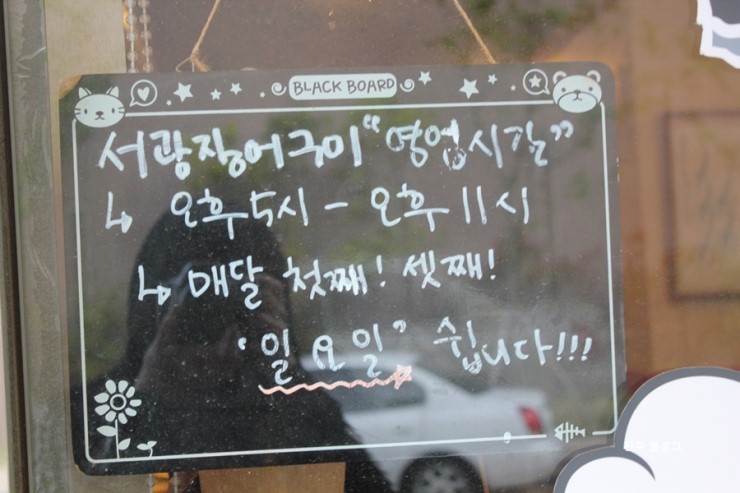 BLACK BOARD
서광장어구이 “영업시간”
↳ 오후 5시 - 오후 11시
↳ 매달 첫째! 셋째!
‘일요일’ 쉽니다!!!